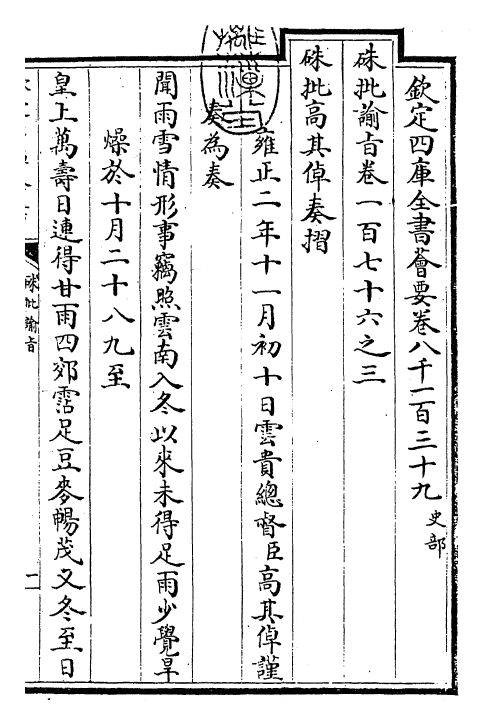 欽定四庫全書薈要卷八千一百三十九 史部
硃批諭旨卷一百七十六之三
硃批高其倬奏摺
雍正二年十一月初十日雲貴總督臣高其倬謹
奏為奏
聞雨雪情形事竊照雲南入冬以來未得足雨少覺旱
燥於十月二十八九至
皇上萬壽日連得甘雨四郊霑足豆麥暢茂又冬至日
硃批諭旨
一